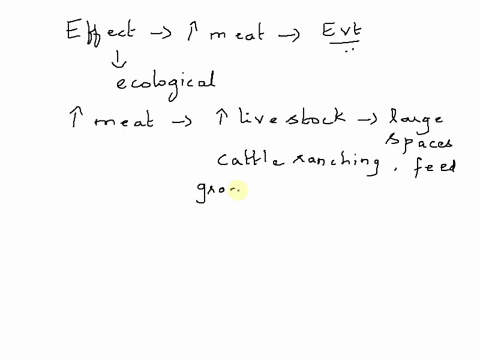 Effect → ↑ meat → Evt
↓
ecological
↑ meat → ↑ livestock → large
spaces
cattle ranching, feed
gro